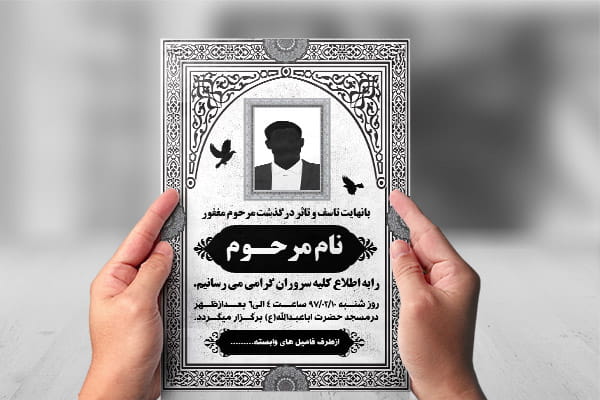 بانهایت تاسف و تاثر درگذشت مرحوم مغفور
نام مرحوم
رابه اطلاع کلیه سروران گرامی می رسانیم.
روز شنبه ۹۷/۰۲/۱۰ ساعت ۴ الی ۶ بعدازظهر
درمسجد حضرت اباعبدالله(ع) برگزار میگردد.
ازطرف فامیل های وابسته..........